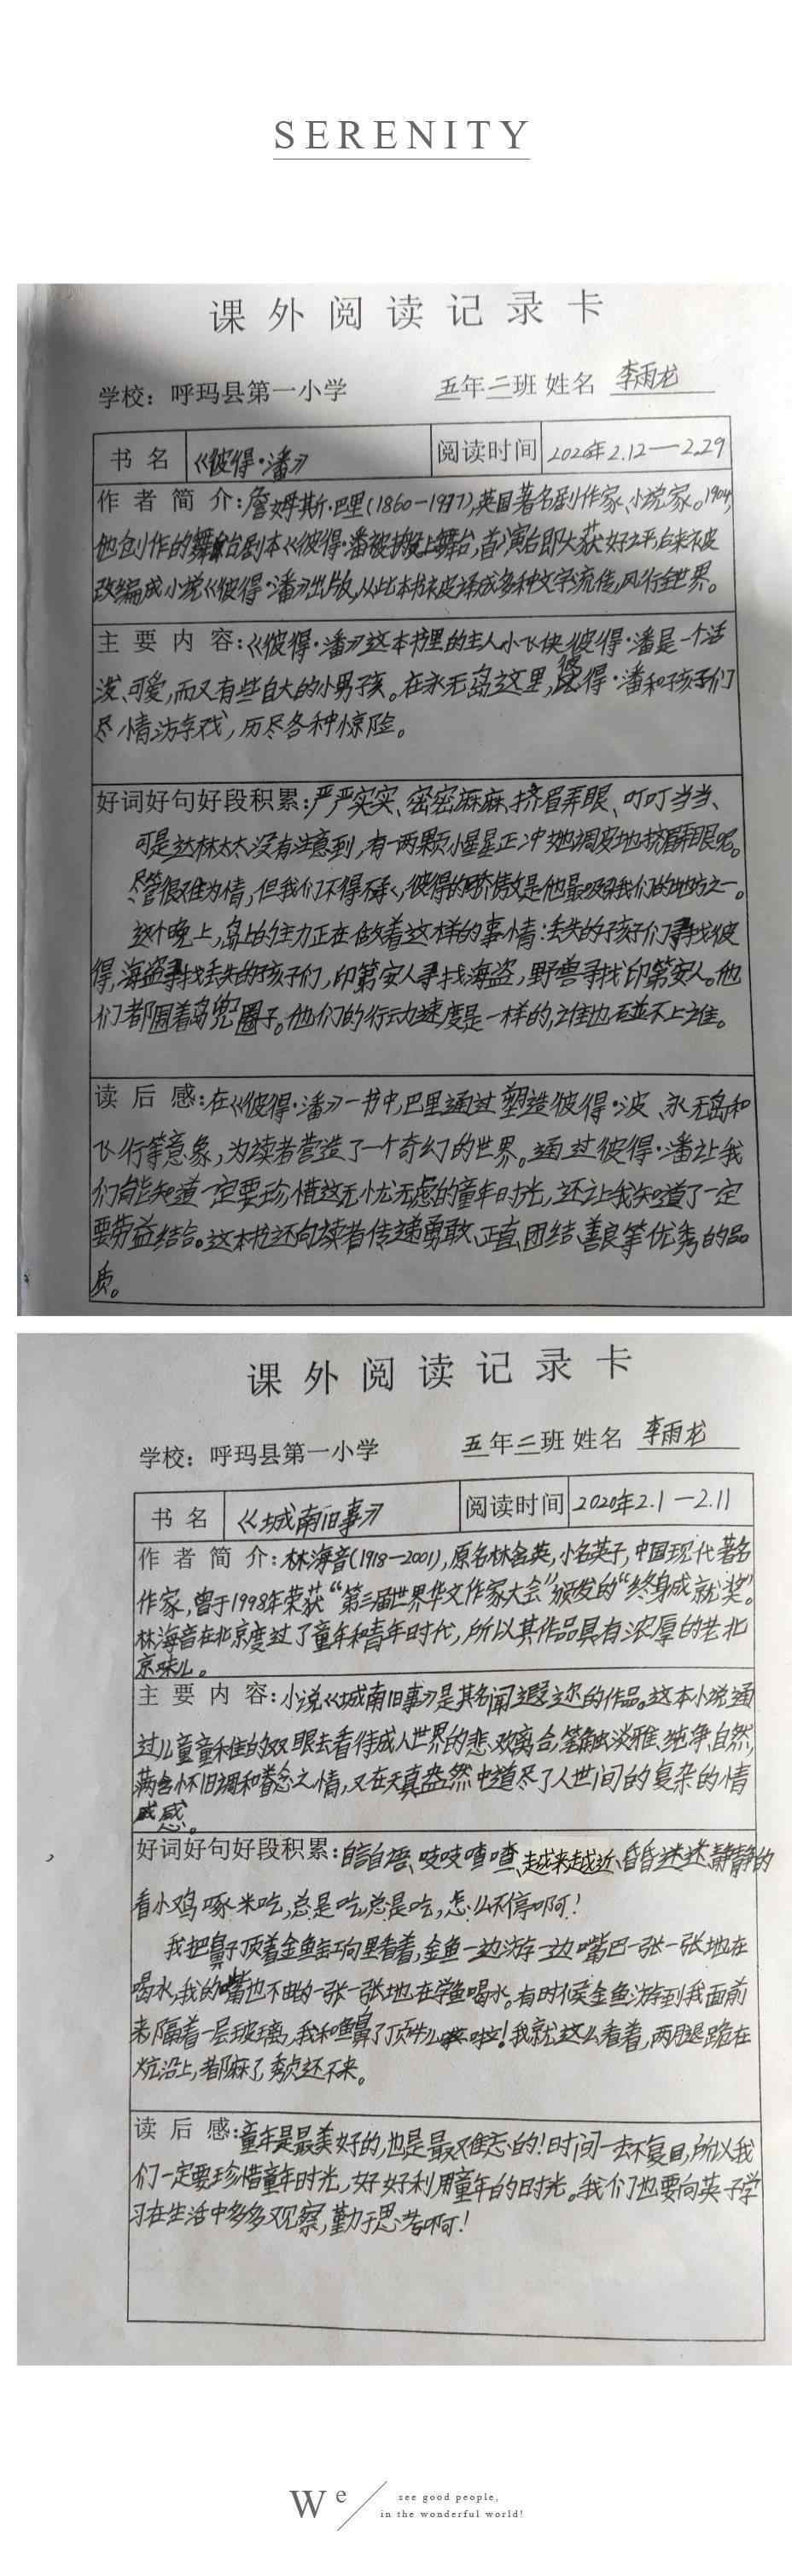 SERENITY
课外阅读记录卡
学校：呼玛县第一小学 五年二班 姓名 李雨龙
书名 《彼得·潘》 阅读时间 2020年2.12—2.29
作者简介:詹姆斯·巴里(1860-1937),英国著名剧作家、小说家。1904,
他创作的舞台剧本《彼得·潘被搬上舞台,首演后即大获好评,后来被
改编成小说《彼得·潘》出版,从此本书被译成多种文字流传,风行全世界。
主要内容:《彼得·潘》这本书里的主人小飞侠彼得·潘是一个活
泼、可爱,而又有些自大的小男孩。在永无岛这里,彼得·潘和孩子们
尽情游戏,历尽各种惊险。
好词好句好段积累:严严实实、密密麻麻、挤眉弄眼、叮叮当当、
可是达林太太没有注意到,有一两颗小星星正冲她调皮地挤眉弄眼呢。
尽管很难为情,但我们不得不承认,彼得的骄傲是他最吸引我们的地方之一。
这个晚上,岛上的主力正在做着这样的事情:丢失的孩子们寻找彼
得,海盗寻找丢失的孩子们,印第安人寻找海盗,野兽寻找印第安人。他
们都围着岛兜圈子。他们的行动速度是一样的,谁也碰不上谁。
读后感:在《彼得·潘》一书中,巴里通过塑造彼得·波、永无岛和
飞行等意象,为读者营造了一个奇幻的世界。通过彼得·潘让我
们能知道一定要珍惜这无忧无虑的童年时光,还让我知道了一定
要劳益结合。这本书还向读者传递勇敢、正直、团结、善良等优秀的品
质。
课外阅读记录卡
学校：呼玛县第一小学 五年二班 姓名 李雨龙
书名 《城南旧事》 阅读时间 2020年2.1—2.11
作者简介:林海音(1918—2001),原名林含英,小名英子,中国现代著名
作家,曾于1998年荣获“第三届世界华文作家大会”颁发的“终身成就奖”。
林海音在北京度过了童年和青年时代,所以其作品具有浓厚的老北
京味儿。
主要内容:小说《城南旧事》是其名闻遐迩的作品。这本小说通
过儿童童稚的双眼去看待成人世界的悲欢离合,笔触淡雅、纯净、自然,
满含怀旧调和眷念之情,又在天真盎然中道尽了人世间的复杂的情
感。
好词好句好段积累:自言自语、吱吱喳喳、越来越近、昏昏迷迷、静静的
看小鸡啄米吃,总是吃,总是吃,怎么不停啊!
我把鼻子顶着金鱼缸向里看着,金鱼一边游一边嘴巴一张一张地在
喝水,我的嘴也不由的一张一张地在学鱼喝水。有时候金鱼游到我面前
来,隔着一层玻璃,我和鱼鼻子顶牛儿啦!我就这么看着,两腿跪在
炕沿上,都麻了,秀贞还不来。
读后感:童年是最美好的,也是最难忘的!时间一去不复回,所以我
们一定要珍惜童年时光,好好利用童年的时光。我们也要向英子学
习在生活中多多观察,勤于思考啊!
We see good people,
in the wonderful world!